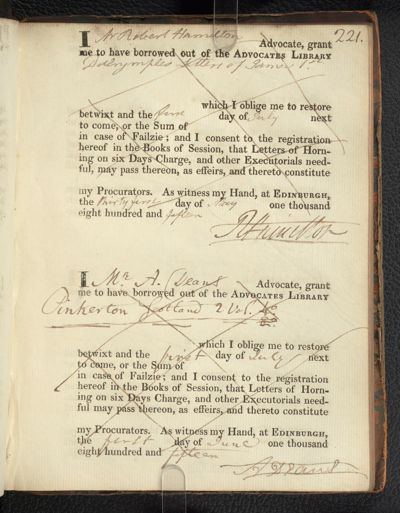 221.
I Mr Robert Hamilton Advocate, grant
me to have borrowed out of the ADVOCATES LIBRARY
Dalrymples Letters of James 1st
which I oblige me to restore
betwixt and the first day of July next
to come, or the Sum of
in case of Failzie; and I consent to the registration
hereof in the Books of Session, that Letters of Horn-
ing on six Days Charge, and other Executorials need-
ful, may pass thereon, as effeirs, and thereto constitute
my Procurators. As witness my Hand, at EDINBURGH,
the thirty first day of May one thousand
eight hundred and fifteen
R Hamilton
I Mr. A. Deans Advocate, grant
me to have borrowed out of the ADVOCATES LIBRARY
Pinkerton Scotland 2 Vol.
which I oblige me to restore
betwixt and the first day of July next
to come, or the Sum of
in case of Failzie; and I consent to the registration
hereof in the Books of Session, that Letters of Horn-
ing on six Days Charge, and other Executorials need-
ful may pass thereon, as effeirs, and thereto constitute
my Procurators. As witness my Hand, at EDINBURGH,
the first day of June one thousand
eight hundred and fifteen
A Deans